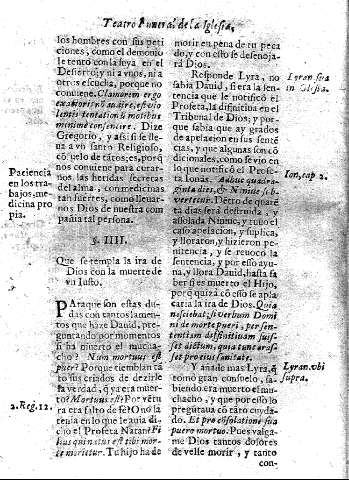 Teatro Funeral de la Iglesia,
los hombres con sus peti
ciones, como el demonio
le tentò con la suya en el
Desierto; ni a vnos, ni a
otros escucha, porque no
conuiene. Clamorem ergo
exaudire
lentis tentationũ motibus
minimè consentire. Dize
Gregorio, y assi si se lleua
a vn santo Religioso,
cõ velo de tãtos; es, porq̃
nos conuiene para curar-
nos, las heridas secretas
del alma, con medicinas
tan fuertes, como lleuar-
nos Dios de nuestra com
pañia tal persona.
§. IIII.
Que se templa la ira de
Dios con la muerte de
vn Iusto.
PAraque son estas du-
das con tantos lamen-
tos que haze Dauid, pre-
guntando por momentos
si ha muerto el mucha-
cho? Num mortuus est
puer? Porque tiemblan tã
to sus criados de dezirle
la verdad, q̃ ya era muer-
to? Mortuus est? Por vẽtu
ra era falto de fe? O no la
tenia en lo que le auia di-
cho el Profeta Natan? Fi
lius qui natus est tibi mor-
te morietur. Tu hijo ha de
Paciencia
en los tra-
bajos, me-
dicina pro
pia.
2. Reg. 12.
morir en pena de tu peca
do, y con esto se desenoja-
rà Dios.
Responde Lyra, no
sabia Dauid, si era la sen-
tencia que le notificò el
Profeta, la difinitiua en el
Tribunal de Dios; y por-
que sabia que ay grados
de apelacion en sus sentẽ
cias, y que algunas son cõ
dicionales, como se vio en
lo que notificò el Profe-
ta Ionas. Adhuc quadra-
ginta dies, & Niniue sub-
vertetur. Dẽtro de quarẽ
ta dias serà destruida, y
assolada Niniue, y tuuo el
caso apelacion, y suplica,
y lloraron, y hizieron pe-
nitencia, y se reuocò la
sentencia, y por esso ayu-
na, y llora Dauid, hasta sa
ber si es muerto el Hijo,
porq̃ quizà cõ esso se apla
caria la ira de Dios. Quia
nesciebat, si verbum Domi
ni de morte pueri, per sen-
tentiam diffinitiuam fuis-
set dictum, quia tunc oras-
set pro eius sanitate.
Y añade mas Lyra, q̃
tomò gran consuelo, sa-
biendo era muerto el mu-
chacho, y que por esso lo
preguntaua cõ tãto cuyda-
do. Et pro consolatione sua
puero mortuo. Pues valga-
me Dios tantos dolores
de velle morir, y tanto
con-
Lyran.
in Glossa.
Ion, cap 2.
Lyran. vbi
supra.